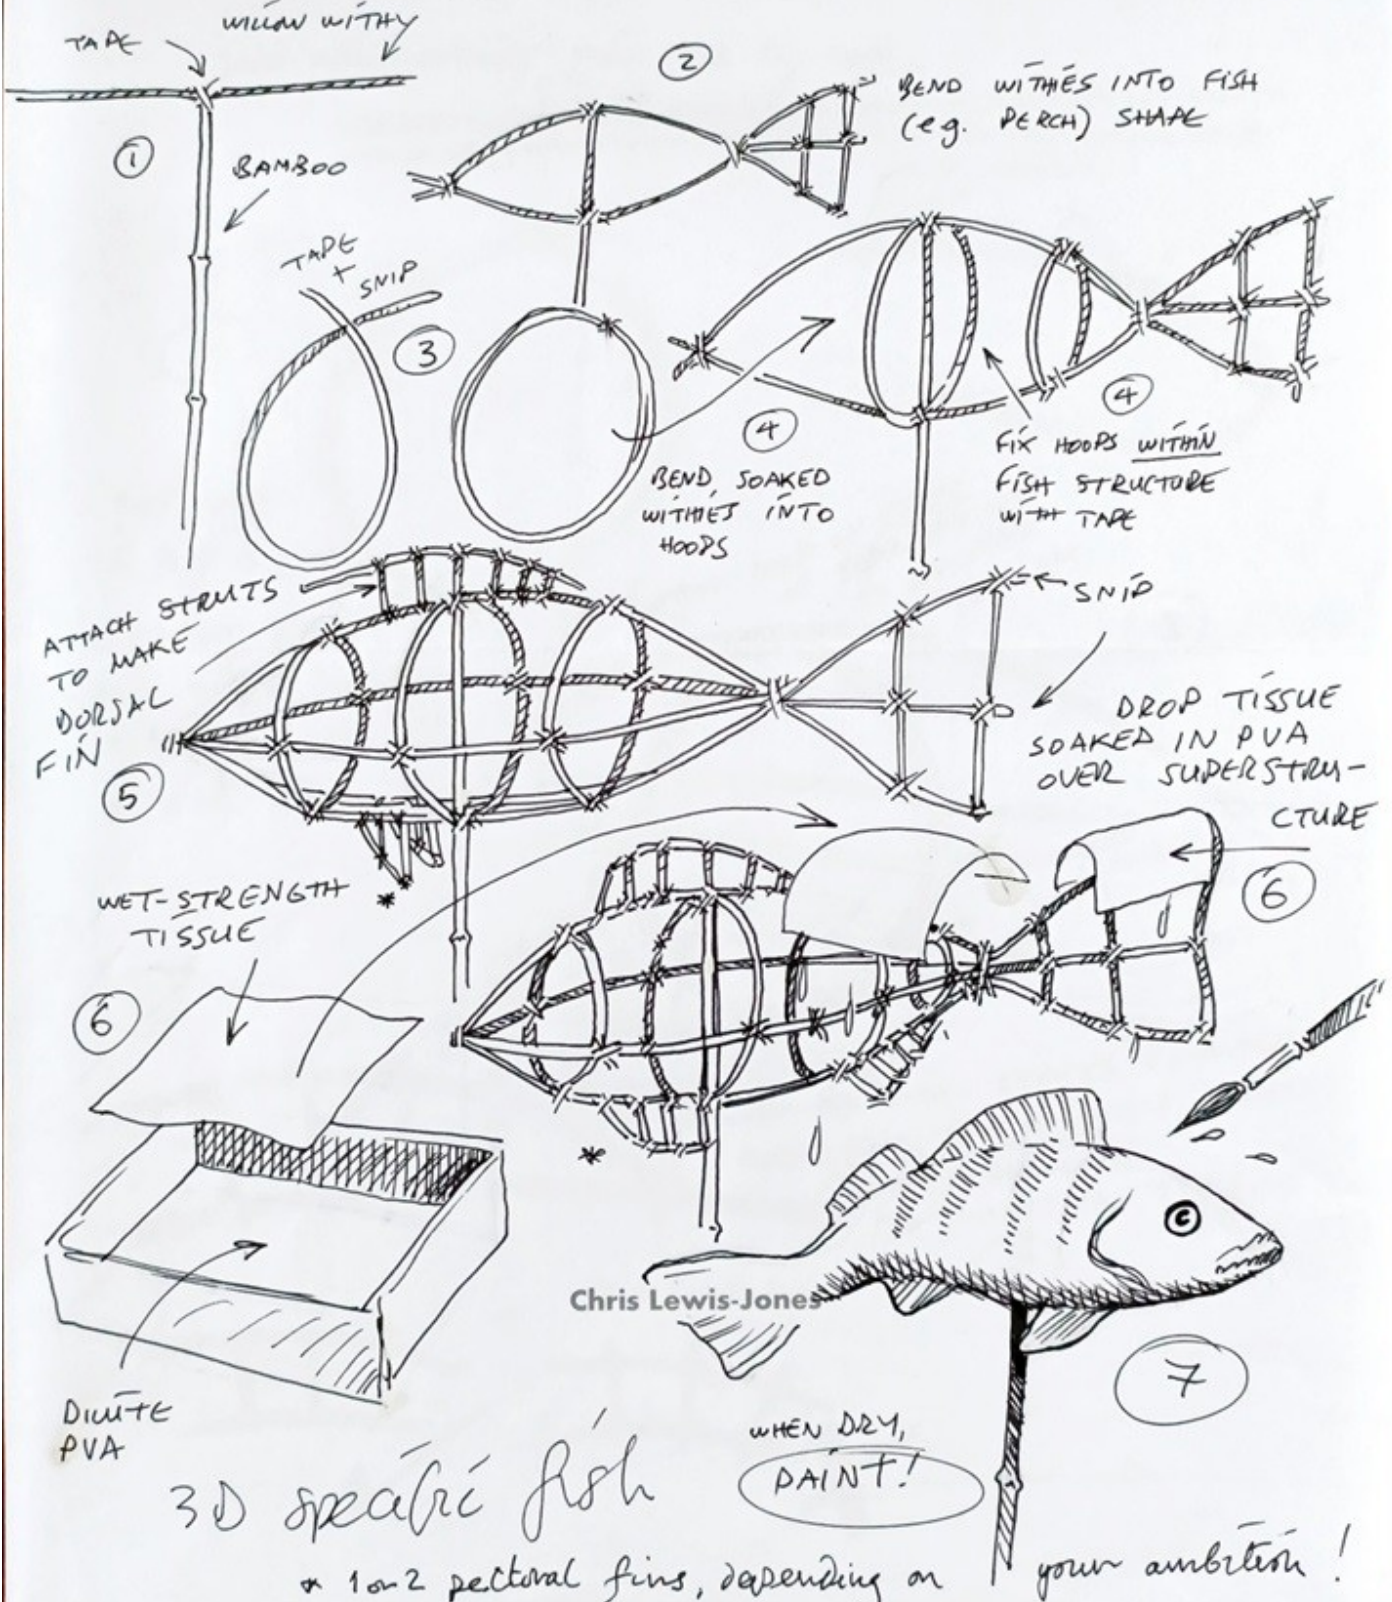 WILLOW WITHY
TAPE
①
BAMBOO
②
BEND WITHIES INTO FISH
(e.g. PERCH) SHAPE
TAPE
+
SNIP
③
④
BEND SOAKED
WITHIES INTO
HOOPS
④
FIX HOOPS WITHIN
FISH STRUCTURE
WITH TAPE
ATTACH STRUTS
TO MAKE
DORSAL
FIN
⑤
*
SNIP
DROP TISSUE
SOAKED IN PVA
OVER SUPERSTRU-
CTURE
⑥
WET-STRENGTH
TISSUE
⑥
*
DILUTE
PVA
Chris Lewis-Jones
⑦
WHEN DRY,
PAINT!
3D specific fish
* 1 or 2 pectoral fins, depending on your ambition!